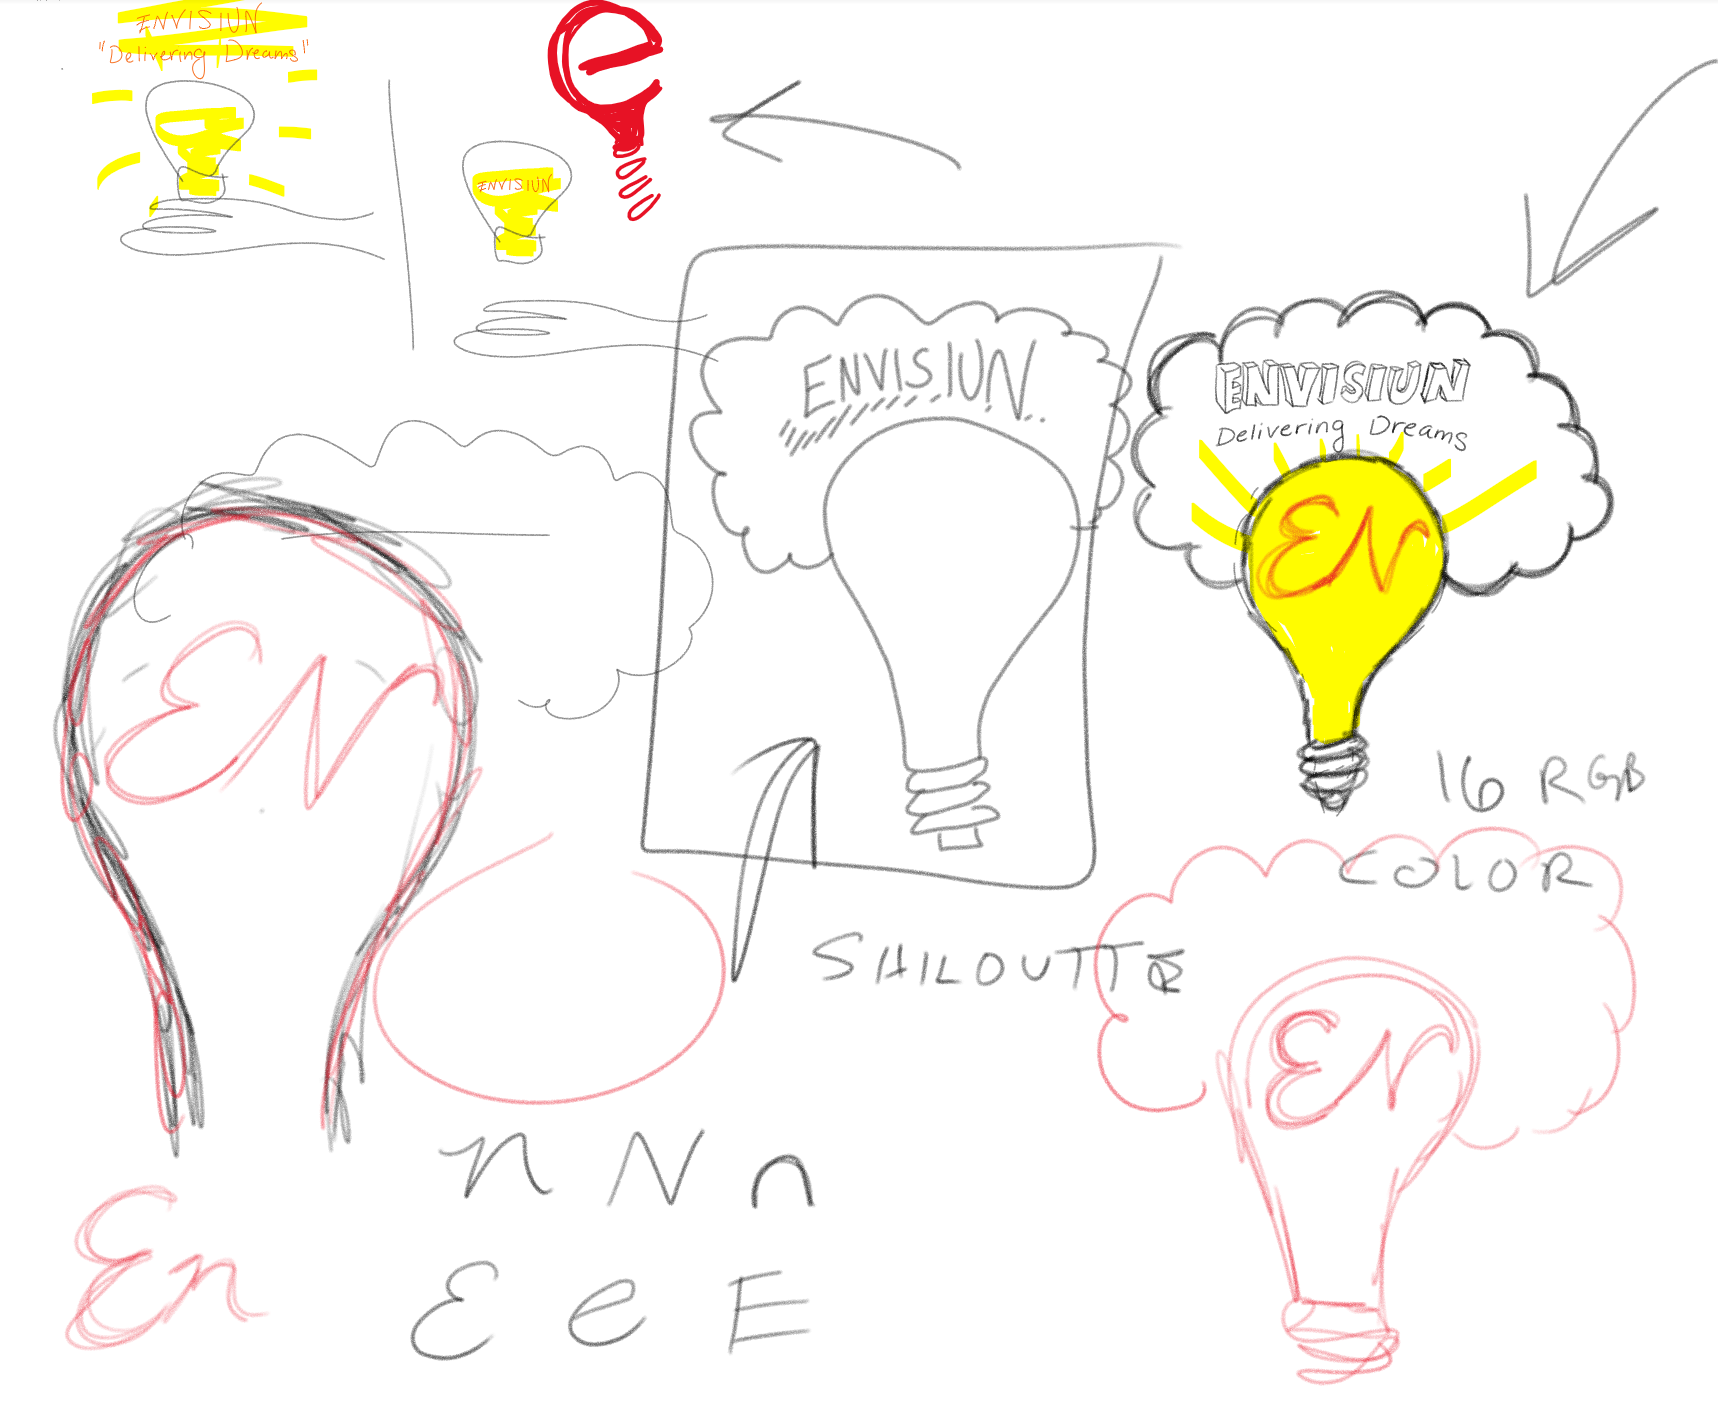 ENVISIUN
"Delivering Dreams"
e
ENVISIUN
ENVISIUN
ENVISIUN
Delivering Dreams
EN
EN
16 RGB
COLOR
SHILOUTTE
EN
n N n
En
E e E